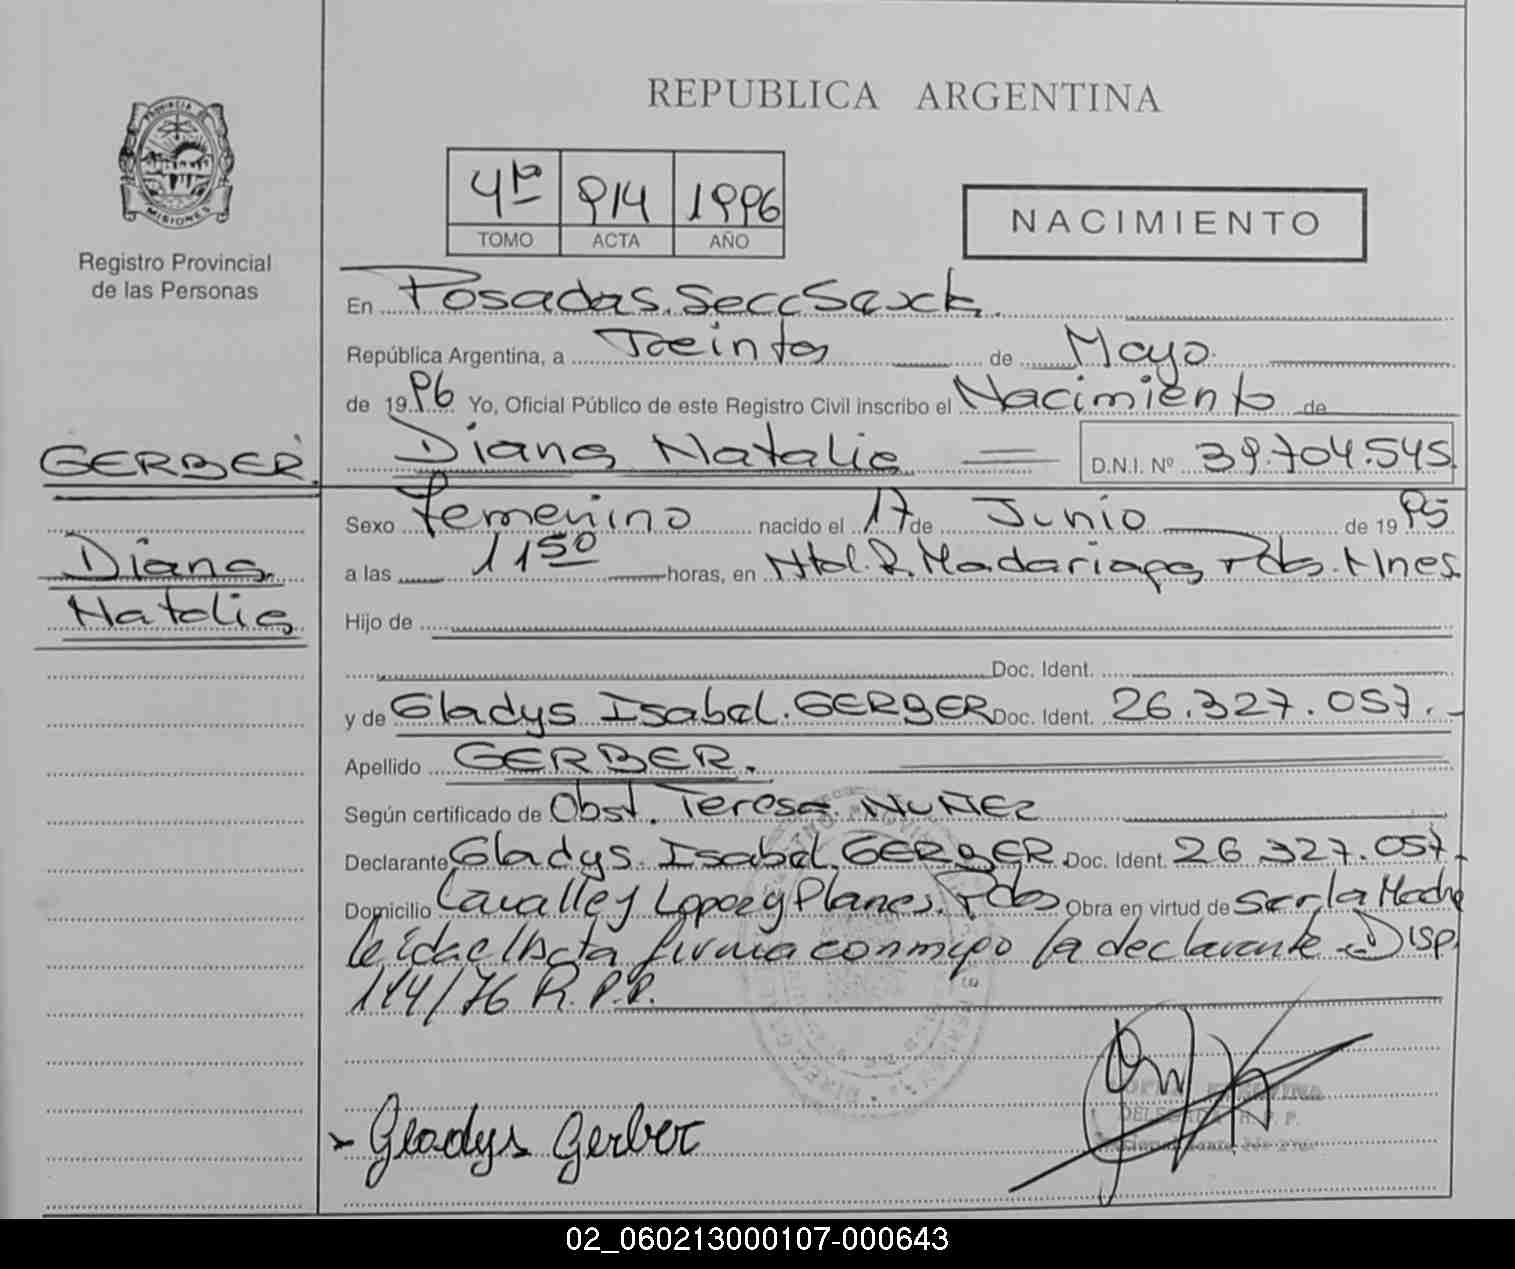 REPUBLICA ARGENTINA
PROVINCIA DE
MISIONES
Registro Provincial
de las Personas
4ta 914 1996
TOMO ACTA AÑO
NACIMIENTO
En Posadas. Secc Sexta.
República Argentina, a Treinta de Mayo
de 1996 Yo, Oficial Público de este Registro Civil inscribo el Nacimiento de
GERBER Diana Natalia D.N.I. Nº 39.704.545
Sexo femenino nacido el 17 de Junio de 1995
Diana
a las 11 50 horas, en Htal. R. Madariaga Pdas. Mnes.
Natalia
Hijo de
Doc. Ident.
y de Gladys Isabel. GERBER Doc. Ident. 26.327.057.-
Apellido GERBER.
Según certificado de Obst. Teresa NUÑEZ
Declarante Gladys. Isabel. GERBER. Doc. Ident. 26 327.057.
Domicilio Lavalle y Lopez y Planes. Pdas Obra en virtud de ser la Madre
leida el Acta firma conmigo la declarante - Disp.
114/76 R. P. P.
Gladys Gerber
02_060213000107-000643